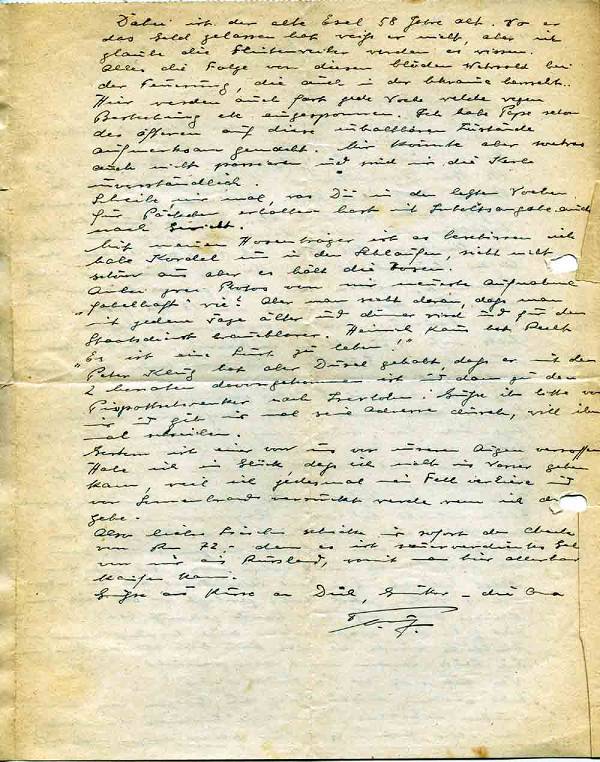 Dabei ist der alte Esel 58 Jahre alt. Wo er
das Geld gelassen hat weiß er nicht, aber ich
glaube die Flintenweiber werden es wissen.
Alles die Folge von diesen blöden Wehrsold bei
der Feuerung, die auch in der Ukraine herrscht.
Hier werden auch fast jede Woche welche wegen
Bestechung etc. eingesponnen. Ich habe Pape schon
des öfteren auf diese unhaltbaren Zustände
aufmerksam gemacht. Mir könnte aber sowas
auch nicht passieren und sind mir die Kerle
unverständlich.
Schreibe mir mal, was Du in den letzten Wochen
für Päckchen erhalten hast mit Inhaltsangabe auch
nach Gewicht.
Mit meinen Hosenträger ist es beschissen ich
habe Kordel um in den Schlaufen, sieht nicht
schön aus aber es hält die Hosen.
Anbei zwei Photos von mir neueste Aufnahme
"fabelhaft" wie? Aber man sieht daran, daß man
mit jedem Tage älter und dünner wird und für den
Staatsdienst brauchbarer. Heinrich Kaus hat Recht
"Es ist eine Lust zu leben!"
Peter Klug hat aber Dusel gehabt, daß er mit den
2 Monaten davongekommen ist und dann zu den
nach Iserlohn. Grüße ihn bitte von
mir und gib mir mal seine Adresse durch, will ihm
mal schreiben.
Gestern ist einer von uns vor unseren Augen versoffen
Habe ich ein Glück, daß ich nicht ins Wasser gehen
kann, weil ich jedesmal ein Fell verliere und
vor Sonnenbrand verrückt werde wenn ich drin
gehe.
Also liebes Lieschen schicke mir sofort den Scheck
von Rm 72,- denn es ist sauerverdientes Geld
von mir aus Russland, womit man hier allerhand
kaufen kann.
Grüße und Küsse an Dich, Günter – die Oma